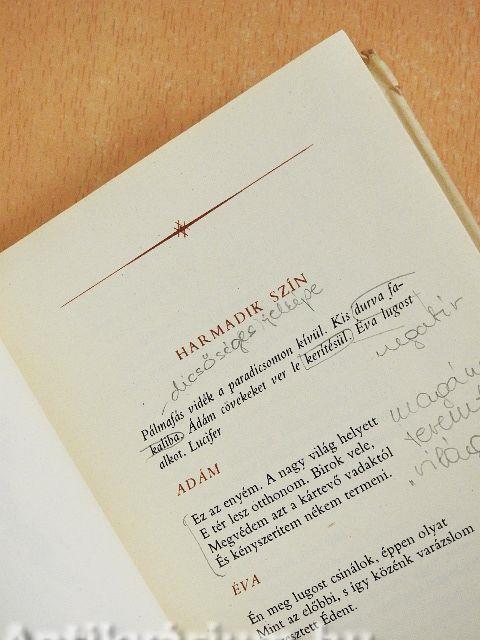 HARMADIK SZÍN
dicsőséges jelképe
Pálmafás vidék a paradicsomon kívül. Kis durva fa-
kaliba. Ádám cövekeket ver le kerítésül. Éva lugost
alkot. Lucifer
negatív
ÁDÁM
Ez az enyém. A nagy világ helyett
E tér lesz otthonom. Bírok vele,
Megvédem azt a kártevő vadaktól
És kényszerítem nékem termeni.
magán
teremt
"világ
ÉVA
Én meg lugost csinálok, éppen olyat
Mint az előbbi, s így közénk varázslom
vesztett Édent.